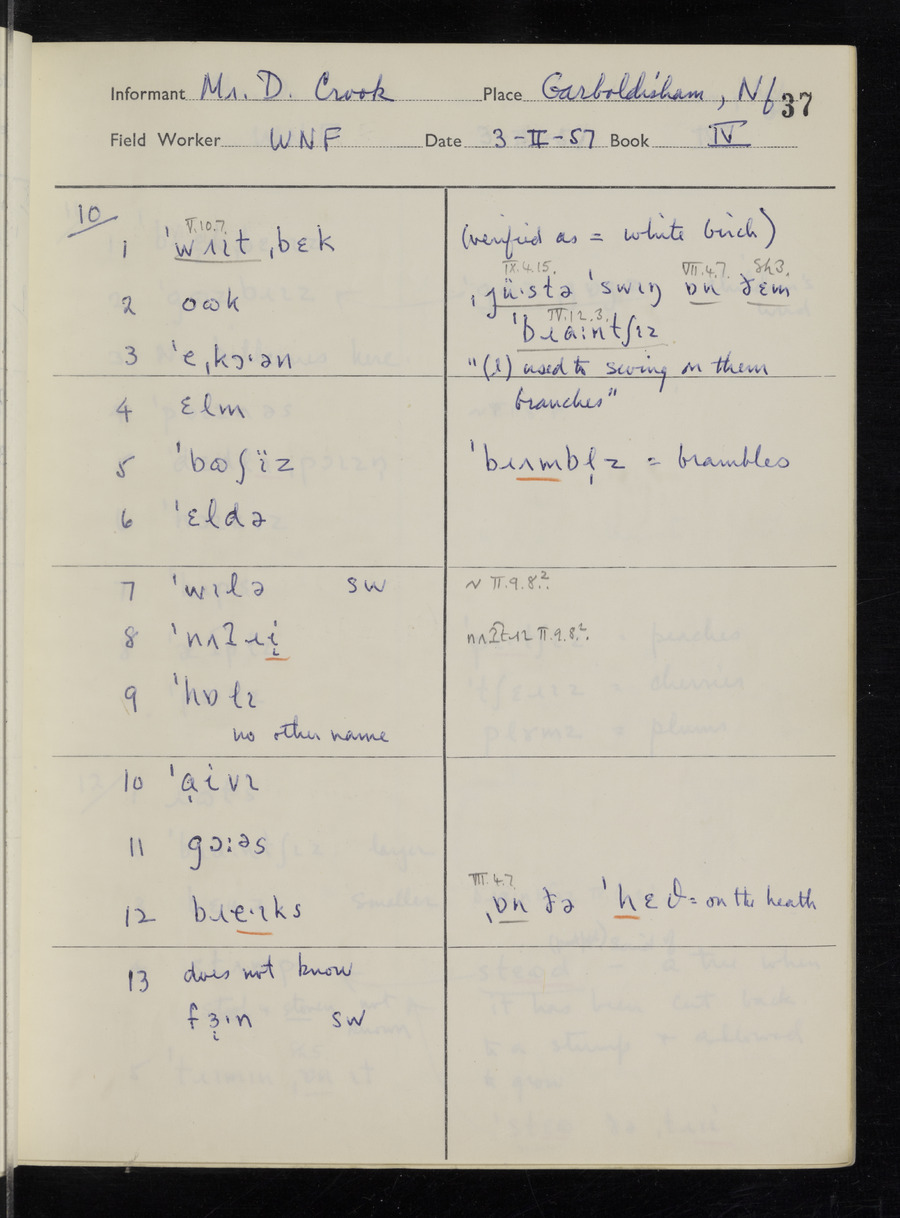 Informant Mr. D. Crook Place Garboldisham, Nf 37
Field Worker WNF Date 3-II-57 Book IV
10
V.10.7.
1 ˈwʌɪt ˌbɛk (verified as = white birch)
IX.4.15. VII.4.7. Sh3.
2 ꝏk ˌjüˑstə ˈswɪŋ ɒn ðɛm
IV.12.3.
ˈbɹaːntʃɪz
3 ˈeˌkɔˑən "(I) used to swing on them
branches"
4 ɛlm
5 ˈbꝏʃïz ˈbɹʌmbl̩z = brambles
6 ˈɛldə
7 ˈwɪlə SW ~ II.9.8.²
8 ˈnʌʔɹi̞
II.9.8.²
9 ˈhɒlɪ
no other name
10 ˈɑ̣ivɪ
11 gɔːəs
VII.4.7
12 bɹeˑɪks ˌɒn ðə ˈhɛθ = on the heath
13 does not know
fɜ̣ˑn SW